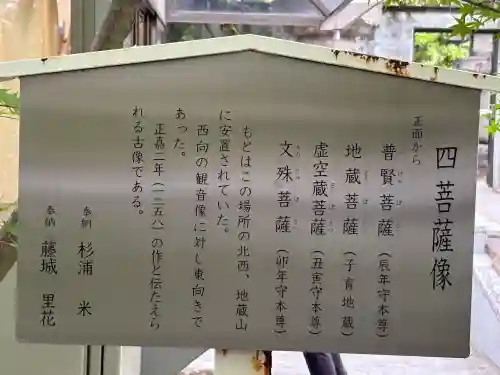 四菩薩像
正面から
普賢菩薩（辰年守本尊）
地蔵菩薩（子育地蔵）
虚空蔵菩薩（丑寅守本尊）
文殊菩薩（卯年守本尊）
もとはこの場所の北西、地蔵山
に安置されていた。
西向の観音像に対し東向きで
あった。
正嘉二年（一二五八）の作と伝たえら
れる古像である。
奉納 杉浦 米
奉納 藤城 里花